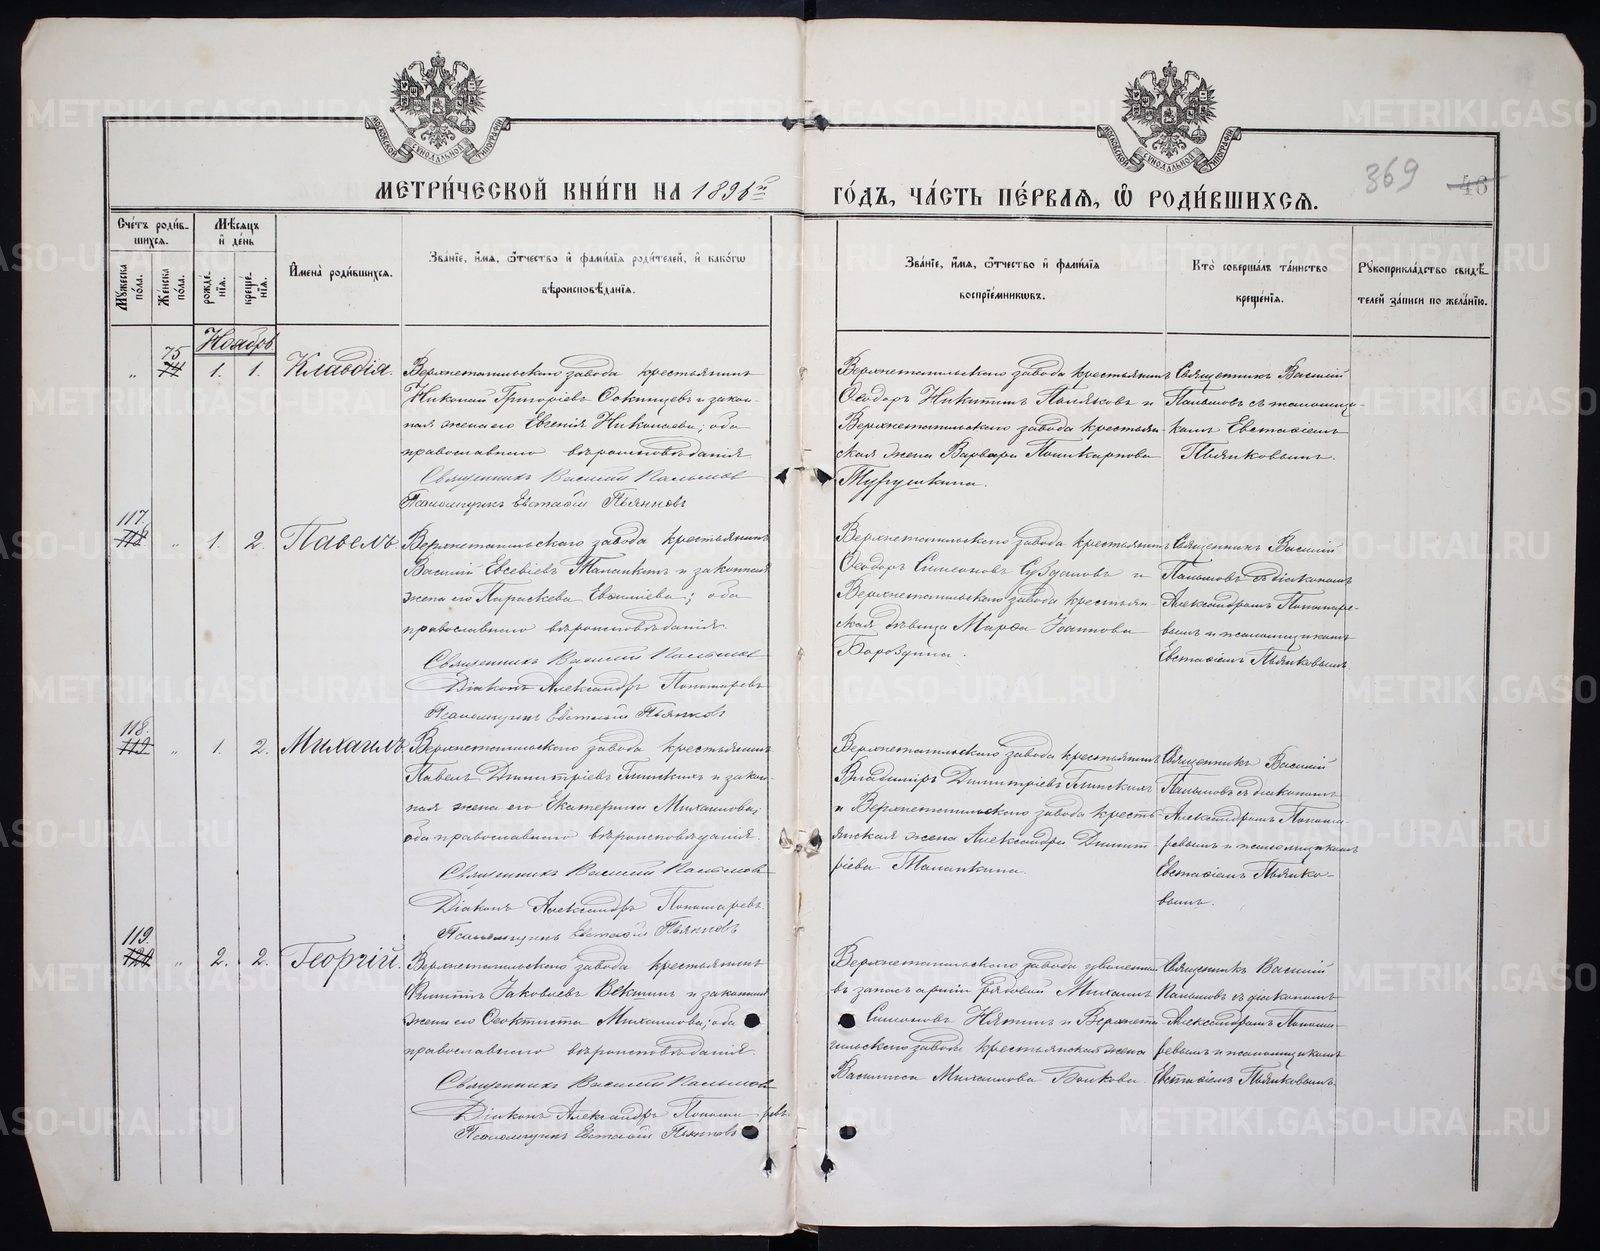 МОСКОВСКОЙ СѴНОДАЛЬНОЙ ТИПОГРАФІИ
МОСКОВСКОЙ СѴНОДАЛЬНОЙ ТИПОГРАФІИ
МЕТРИ́ЧЕСКОЙ КНИ́ГИ НА 1896й ГО́ДЪ, ЧА́СТЬ ПЕ́РВАЯ, Ѽ РОДИ́ВШИХСѦ.
369
46
Сче́тъ роди́в-
шихсѧ.
Мѣ́сѧцъ
и҆ де́нь
Му́жеска
по́ла.
Же́нска
по́ла.
рожде́-
нїѧ.
креще́-
нїѧ.
И҆мена̀ роди́вшихсѧ.
Зва́нїе, и҆́мѧ, ѻ҆́тчество и҆ фами́лїѧ роди́телей, и҆ како́гѡ
вѣроисповѣ́данїѧ.
Зва́нїе, и҆́мѧ, ѻ҆́тчество и҆ фами́лїѧ
воспрїе́мникѡвъ.
Кто̀ соверша́лъ та́инство
креще́нїѧ.
Рꙋкоприкла́дство свидѣ́-
телей за́писи по жела́нїю.
Ноябрь
75
74 1. 1. Клавдія.
Верхнетагильскаго завода крестьянинъ
Николай Григоріевъ и закон-
ная жена его Евгенія Николаева; оба
православнаго вѣроисповѣданія
Священникъ Василій Пальмовъ
Псаломщикъ Евстафій Пьянковъ
Верхнетагильскаго завода крестьянинъ
Ѳеодоръ Никитинъ Поляковъ и
Верхнетагильскаго завода крестьян-
ская жена Варвара Поликарпова
Священникъ Василій
Пальмовъ съ псаломщи-
комъ Евстафіемъ
Пьянковымъ.
117.
118 1. 2. Павелъ
Верхнетагильскаго завода крестьянинъ
Василій Евсевіевъ Таланкинъ и законная
жена его Параскева; оба
православнаго вѣроисповѣданія.
Священникъ Василій Пальмовъ
Діаконъ Александръ Пономаревъ
Псаломщикъ Евстафій Пьянковъ
Верхнетагильскаго завода крестьянинъ
Ѳеодоръ Симеоновъ и
Верхнетагильскаго завода крестьян-
ская дѣвица Марѳа Іоаннова
Бороздина.
Священникъ Василій
Пальмовъ съ діакономъ
Александромъ Пономаре-
вымъ и псаломщикомъ
Евстафіемъ Пьянковымъ
118.
119 1. 2. Михаилъ
Верхнетагильскаго завода крестьянинъ
Павелъ Димитріевъ Глинскихъ и закон-
ная жена его Екатерина Михаилова;
оба православнаго вѣроисповѣданія.
Священникъ Василій Пальмовъ
Діаконъ Александръ Пономаревъ.
Псаломщикъ Евстафій Пьянковъ
Верхнетагильскаго завода крестьянинъ
Владиміръ Димитріевъ Глинскихъ
и Верхнетагильскаго завода кресть-
янская жена Александра Димит-
ріева Таланкина.
Священникъ Василій
Пальмовъ съ діакономъ
Александромъ Понома-
ревымъ и псаломщикомъ
Евстафіемъ Пьянко-
вымъ.
119.
120 2. 2. Георгій.
Верхнетагильскаго завода крестьянинъ
Филиппъ Іаковлевъ Векшинъ и законная
жена его Ѳеоктиста Михаилова; оба
православнаго вѣроисповѣданія.
Священникъ Василій Пальмовъ
Діаконъ Александръ Пономаревъ.
Псаломщикъ Евстафій Пьянковъ
Верхнетагильскаго завода уволенный
въ запасъ арміи рядовой Михаилъ
Симеоновъ и Верхнета-
гильскаго завода крестьянская жена
Василиса Михаилова
Священникъ Василій
Пальмовъ съ діакономъ
Александромъ Понома-
ревымъ и псаломщикомъ
Евстафіемъ Пьянковымъ.
METRIKI.GASO-URAL.RU